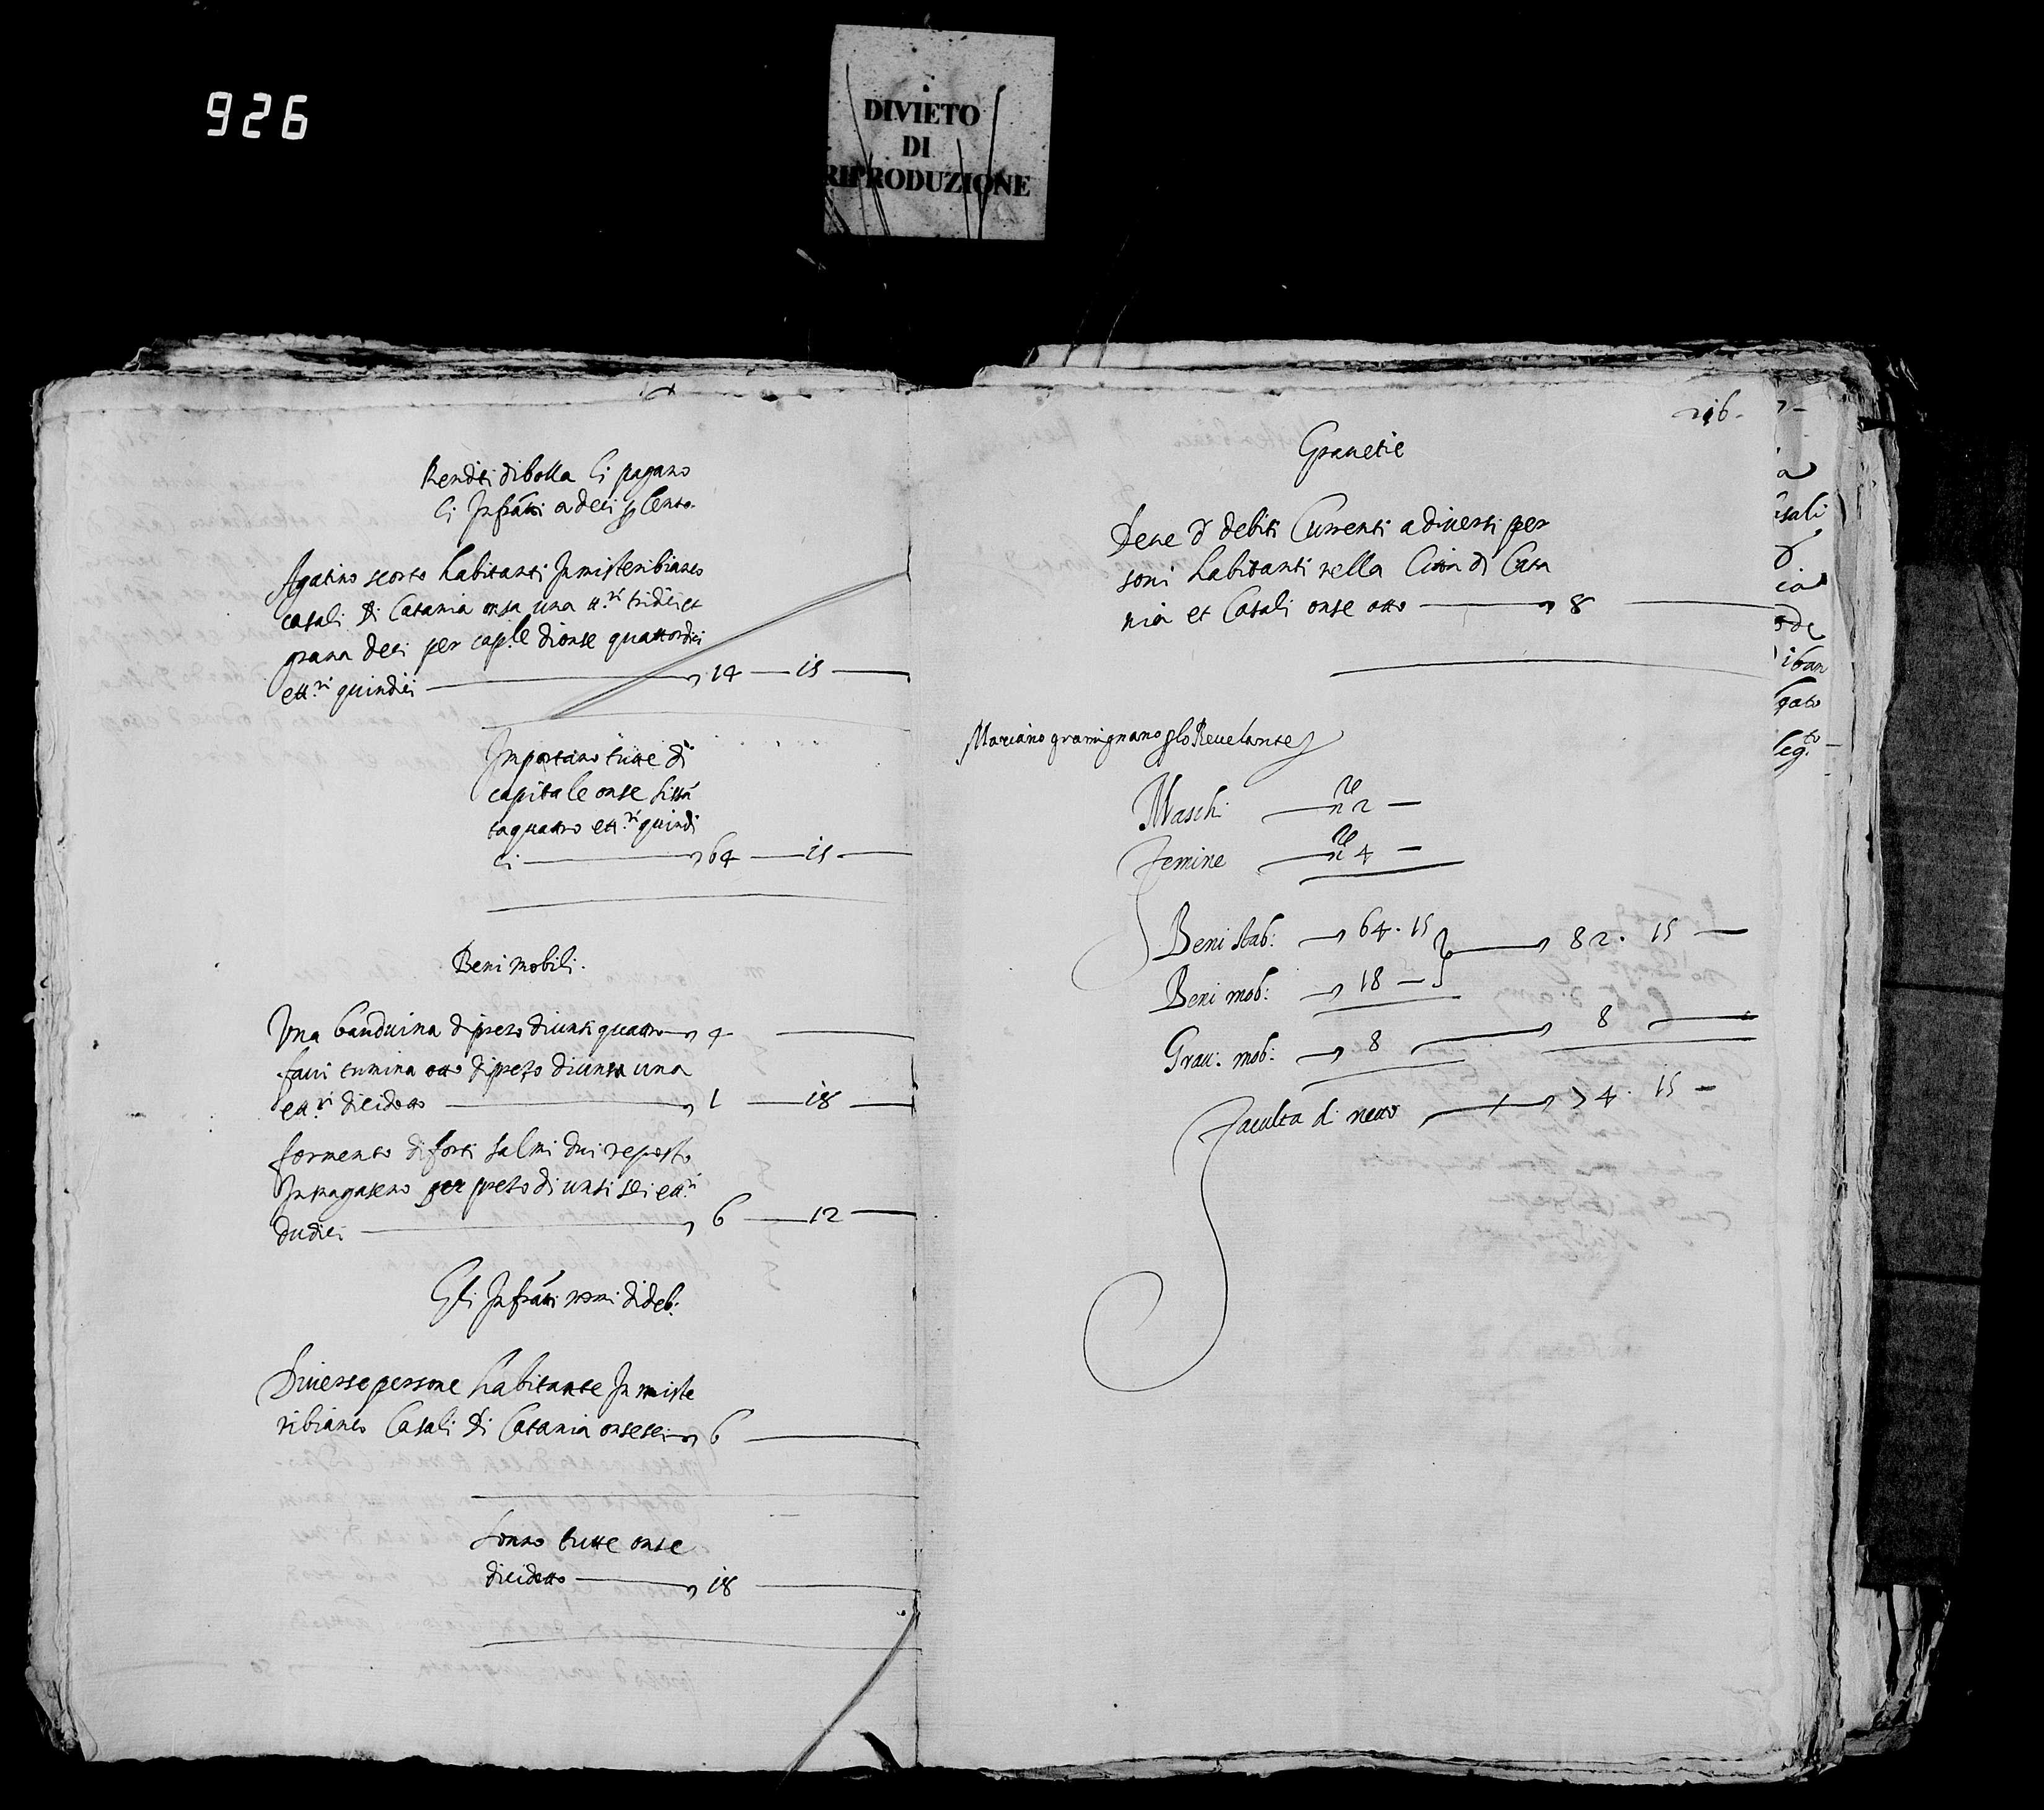 926
DIVIETO
DI
RIPRODUZIONE
Renditi di bolla li pagano
li Infratti a deci p Cento.
Agatino scorto habitanti In misteribianco
casali di Catania onsa una tt.ri tridici et
grana deci per cap.le di onse quattordici
et tt.ri quindici 14 — 15 —
Importano tutte di
capitale onse sissã
taquattro et tt.ri quindi
ci 64 — 15 —
Beni mobili.
Una bauduina di prezo di unsi quattro 4 —
favi tumina otto di prezo di unsa una
et tt.ri dicidotto 1 — 18 —
formento di forti salmi dui reposto
In magaseno per prezo di unsi sei et tt.ri
dudici 6 — 12 —
Gli Infratti nomi di deb:
Diverse persone habitante In miste
ribianco Casali di Catania onse sei 6 —
Sonno tutte onse
dicidotto 18 —
216.
Gravetie
Deve d debiti Currenti a diversi per
soni habitanti nella Citta di Cata
nia et Casali onse otto 8 —
Mariano gramignano p lo Revelante
Maschi — n.o 2 —
Femine — n.o 4 —
Beni stab: 64. 15 82. 15 —
Beni mob: 18 —
Grav: mob: 8 8 —
Faculta di netto 74. 15 —
a
sali
ia
de
iban
gato
leg.to